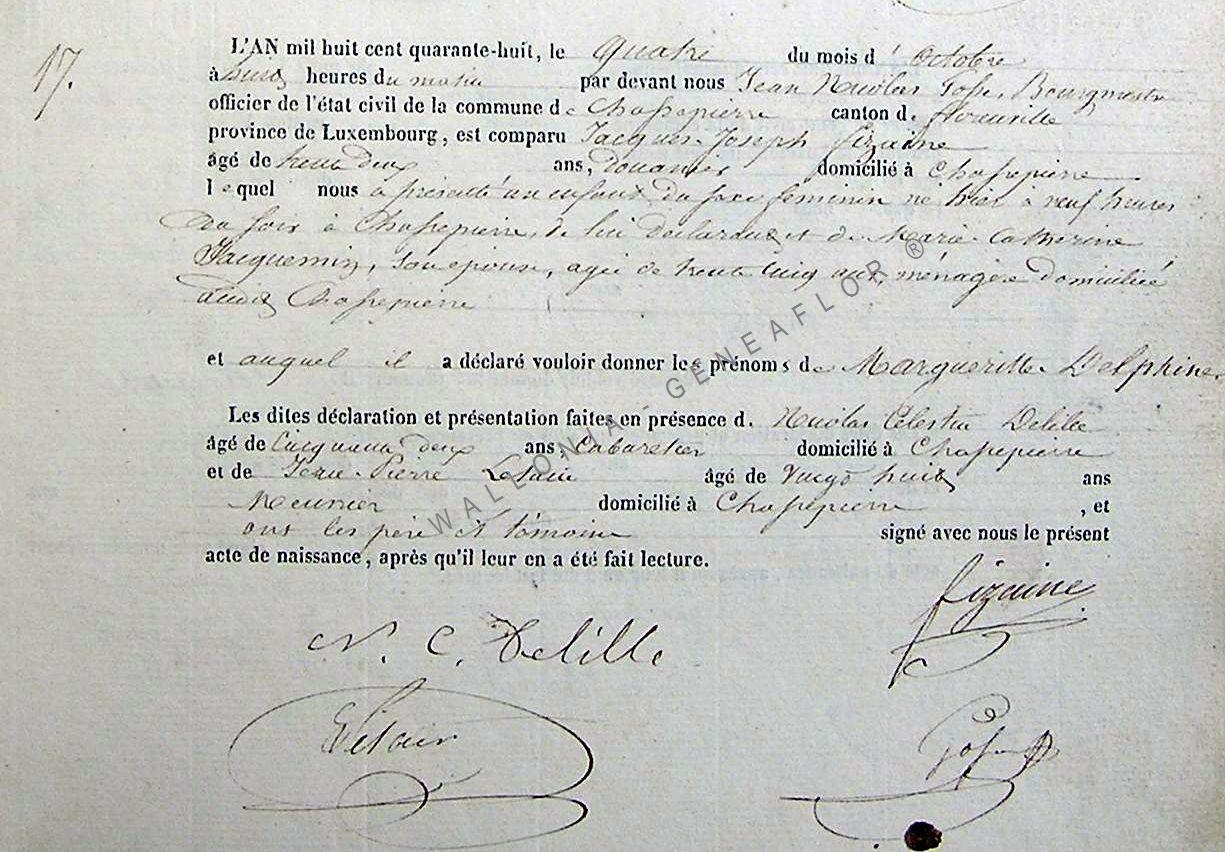 17.
L'AN mil huit cent quarante-huit, le quatre du mois d' octobre
à heures du matin par devant nous Jean Nicolas Bourgmestre
officier de l'état civil de la commune de Chassepierre canton de florenville
province de Luxembourg, est comparu Jacques Joseph fizaine
âgé de trente deux ans, Douanier domicilié à Chassepierre
lequel nous a présenté un enfant du sexe feminin né hier à neuf heures
du soir à Chassepierre, de lui déclarant et de Marie Catherine
Jacquemin, son épouse, agée de trente cinq ans, ménagère domiciliée
audit Chassepierre
et auquel il a déclaré vouloir donner les prénoms de Margueritte Delphine.
Les dites déclaration et présentation faites en présence d. Nicolas Celestin Delille
âgé de cinquante deux ans, cabaretier domicilié à Chassepierre
et de Jean-Pierre âgé de vingt huit ans
Meunier domicilié à Chassepierre , et
ont les père et témoins signé avec nous le présent
acte de naissance, après qu'il leur en a été fait lecture.
fizaine
N. C. Delille
WALLONIA - GENEAFLOR ®